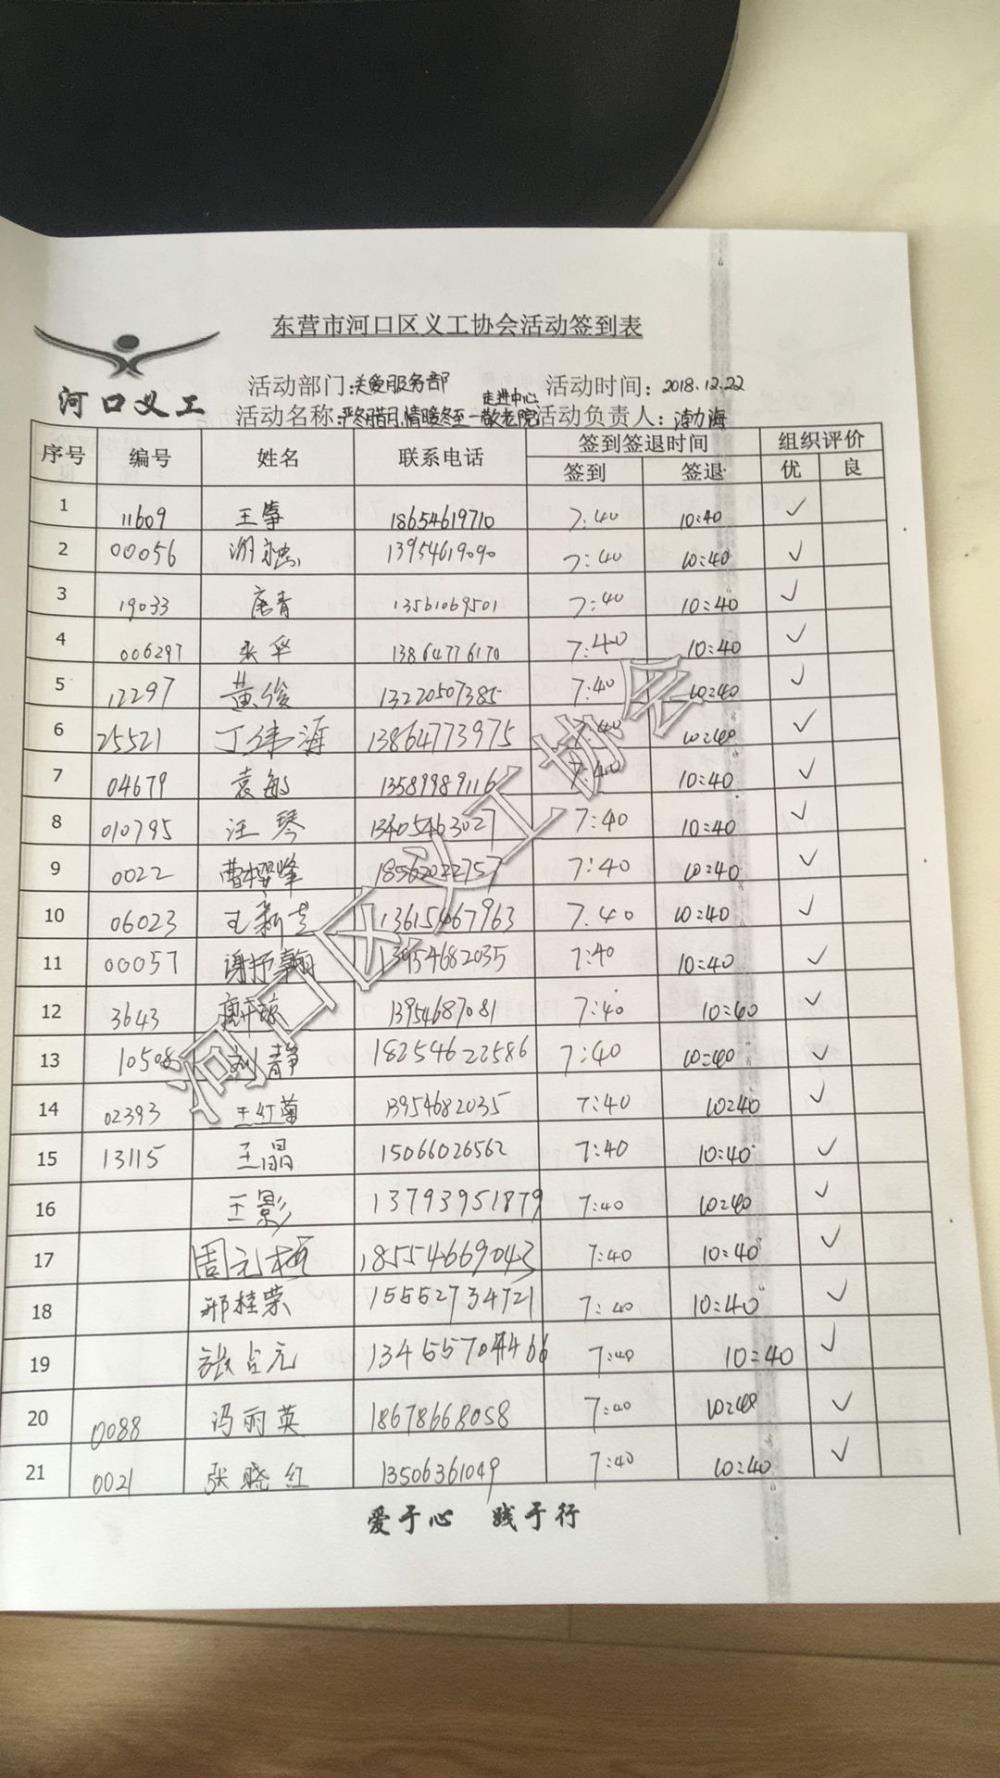 东营市河口区义工协会活动签到表
河口义工
活动部门:关爱服务部 活动时间:2018.12.22
走进中心
活动名称:严冬腊月,情暖冬至一敬老院 活动负责人:渤海
序号 编号 姓名 联系电话 签到签退时间 组织评价
签到 签退 优 良
1 11609 王筝 18654619710 7:40 10:40 ✓
2 00056 13954619090 7:40 10:40 ✓
3 19033 唐青 13561069501 7:40 10:40 ✓
4 006297 张华 13864776170 7:40 10:40 ✓
5 12297 黄俊 13220507385 7:40 10:40 ✓
6 25521 丁伟海 13864773975 7:40 10:40 ✓
7 04679 袁敏 13589989116 7:40 10:40 ✓
8 010795 汪琴 13405463027 7:40 10:40 ✓
9 0022 曹樱峰 18562022757 7:40 10:40 ✓
10 06023 王新志 13615467963 7.40 10:40 ✓
11 00057 谢抒翰 13954682035 7:40 10:40 ✓
12 3643 13954687081 7:40 10:40 ✓
13 10508 刘静 18254622586 7:40 10:40 ✓
14 02393 王红菊 13954682035 7:40 10:40 ✓
15 13115 王晶 15066026562 7:40 10:40 ✓
16 王影 13793951879 7:40 10:40 ✓
17 周元梅 18554669043 7:40 10:40 ✓
18 邢桂荣 15552734721 7:40 10:40 ✓
19 张占元 7:40 10:40 ✓
20 0088 冯丽英 18678668058 7:40 10:40 ✓
21 0021 张晓红 13506361049 7:40 10:40 ✓
河口区义工协会
爱于心 践于行